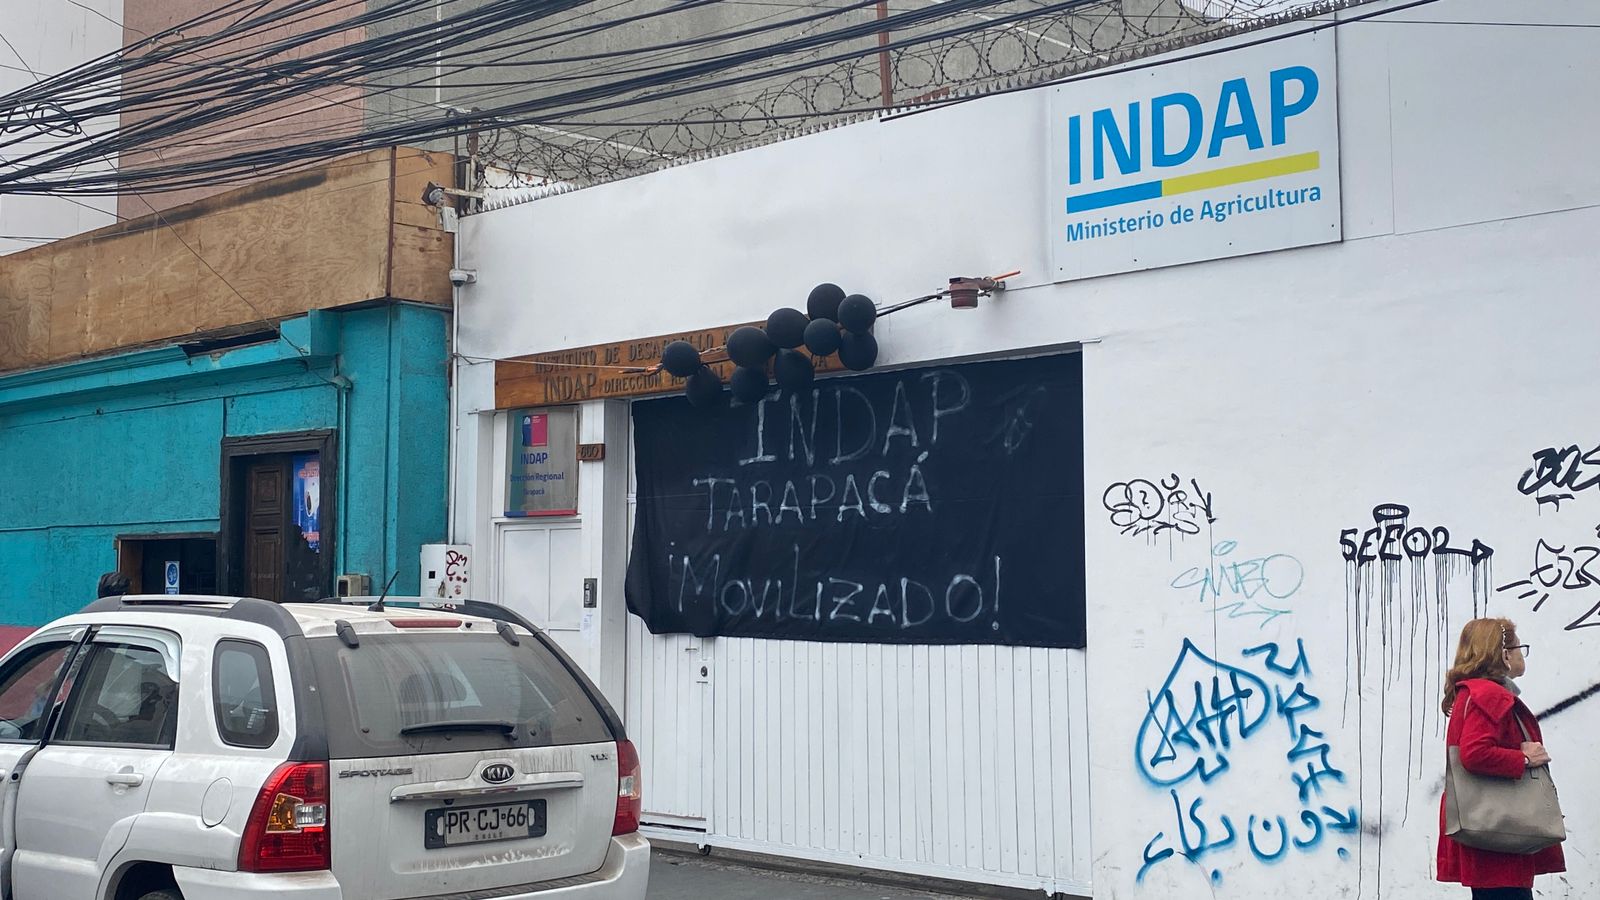 INDAP
Ministerio de Agricultura
INSTITUTO DE DESARROLLO
INDAP DIRECCIÓN
INDAP
Dirección Regional
Tarapacá
600
INDAP
TARAPACÁ
¡MOVILIZADO!
SEEOR
بدون بكاء
SPORTAGE
KIA
TLX
PR CJ 66
CHILE